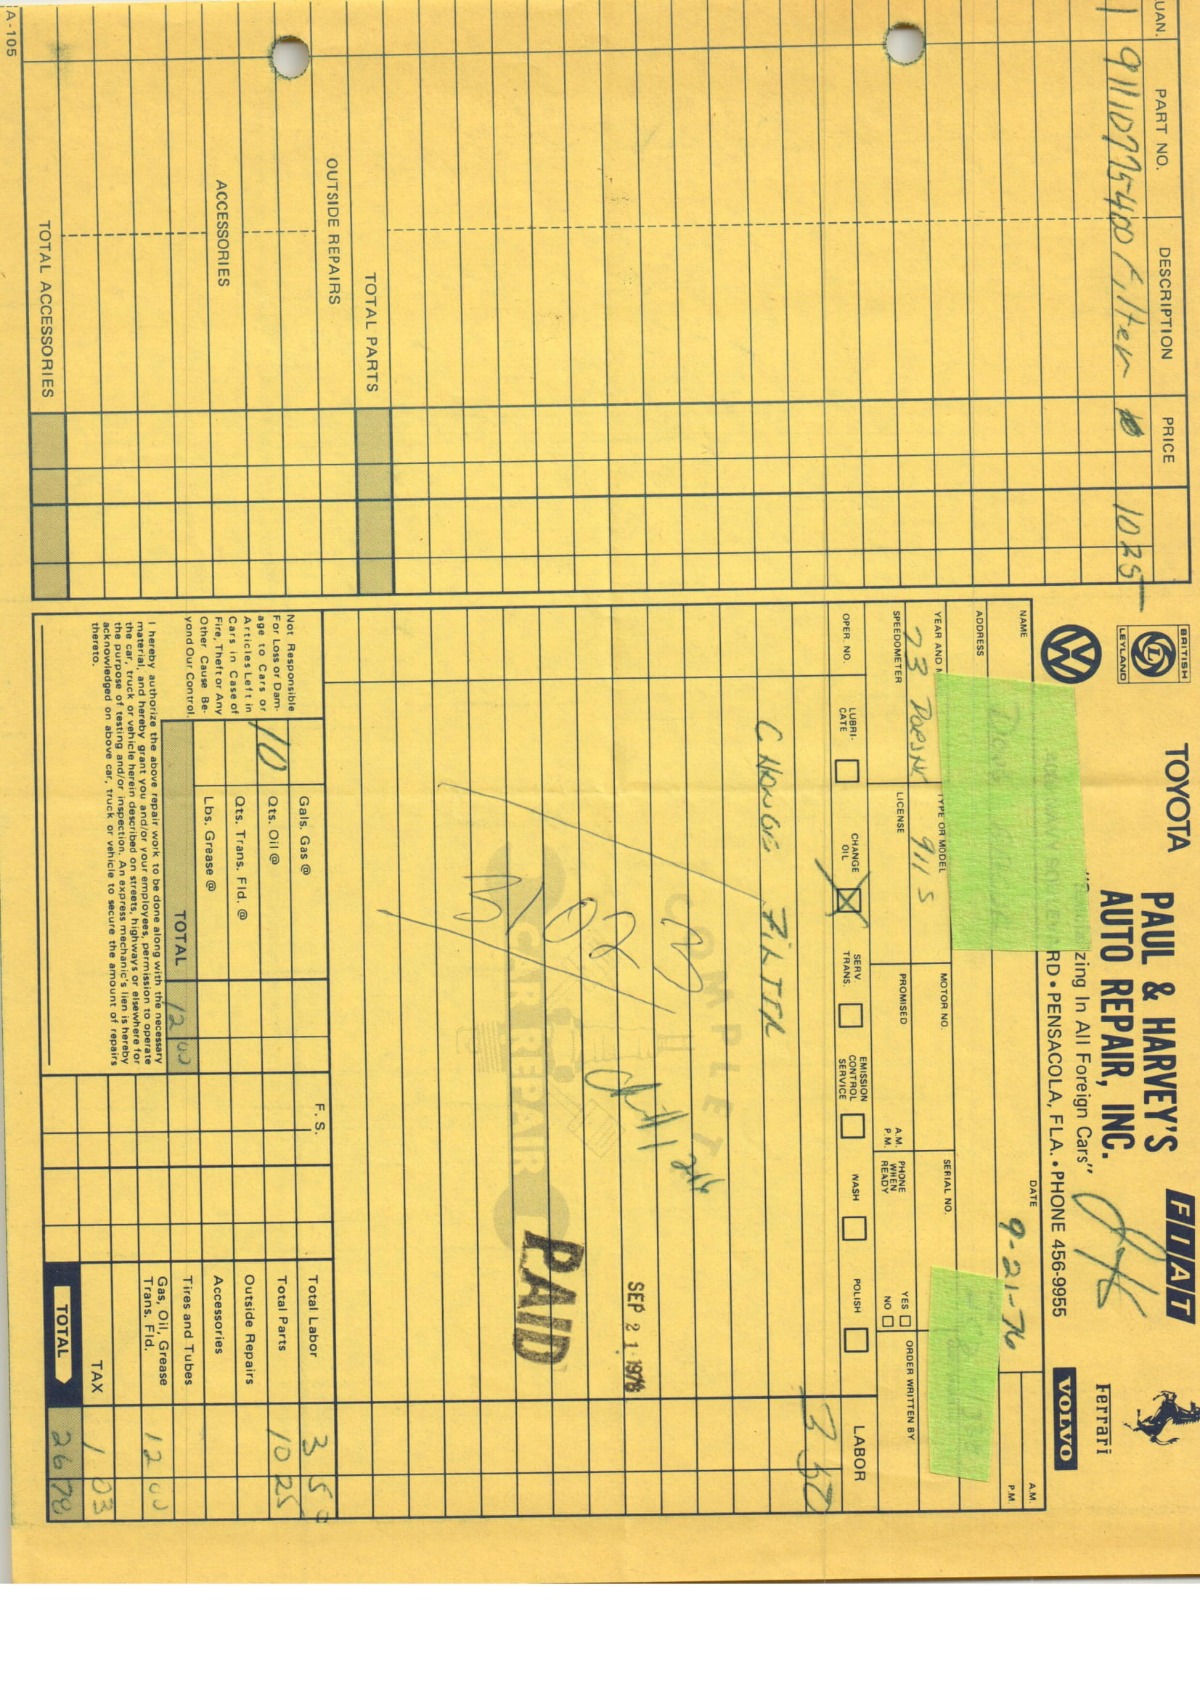 BRITISH
L
LEYLAND
TOYOTA
FIAT
VW
PAUL & HARVEY'S
AUTO REPAIR, INC.
zing In All Foreign Cars"
RD • PENSACOLA, FLA. • PHONE 456-9955
Ferrari
VOLVO
NAME
DATE
9-21-76
A.M.
P.M.
ADDRESS
YEAR AND M
TYPE OR MODEL
MOTOR NO.
SERIAL NO.
73 Porsche
911 S
SPEEDOMETER
LICENSE
PROMISED
A.M.
P.M.
PHONE WHEN READY
YES
NO
ORDER WRITTEN BY
OPER. NO.
LUBRICATE
CHANGE OIL
SERV. TRANS.
EMISSION CONTROL SERVICE
WASH
POLISH
LABOR
3 50
CHANGE FILTER
COMPLETE
CAR REPAIR
SEP 21 1976
PAID
UAN.
PART NO.
DESCRIPTION
PRICE
1
91110775400
Filter
10 25
TOTAL PARTS
OUTSIDE REPAIRS
ACCESSORIES
TOTAL ACCESSORIES
A-105
Not Responsible
For Loss or Dam-
age to Cars or
Articles Left in
Cars in Case of
Fire, Theft or Any
Other Cause Be-
yond Our Control.
Gals. Gas @
10
Qts. Oil @
Qts. Trans. Fld. @
Lbs. Grease @
TOTAL
12 00
I hereby authorize the above repair work to be done along with the necessary
material, and hereby grant you and/or your employees, permission to operate
the car, truck or vehicle herein described on streets, highways or elsewhere for
the purpose of testing and/or inspection. An express mechanic's lien is hereby
acknowledged on above car, truck or vehicle to secure the amount of repairs
thereto.
F. S.
Total Labor
3 50
Total Parts
10 25
Outside Repairs
Accessories
Tires and Tubes
Gas, Oil, Grease
Trans. Fld.
12 00
TAX
1 03
TOTAL
26 78